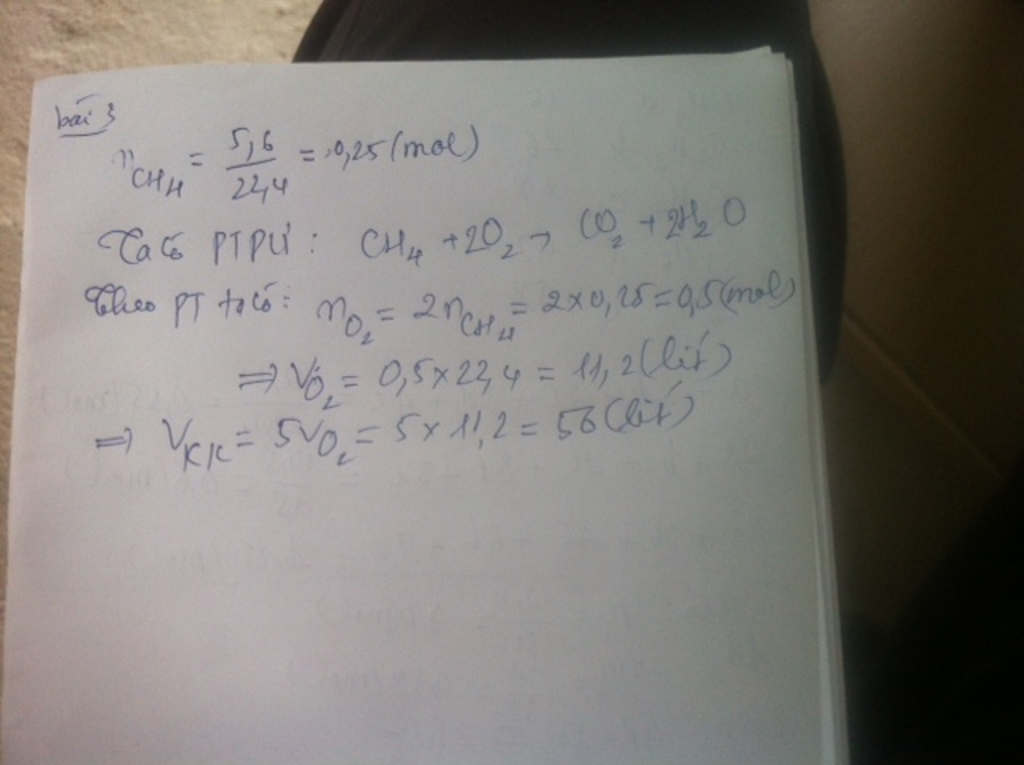 bài 3
nCH4 = 5,6/22,4 = 0,25 (mol)
Ta có PTPƯ: CH4 + 2O2 → CO2 + 2H2O
Theo PT ta có: nO2 = 2nCH4 = 2 x 0,25 = 0,5 (mol)
=> VO2 = 0,5 x 22,4 = 11,2 (lít)
=> VKK = 5VO2 = 5 x 11,2 = 56 (lít)